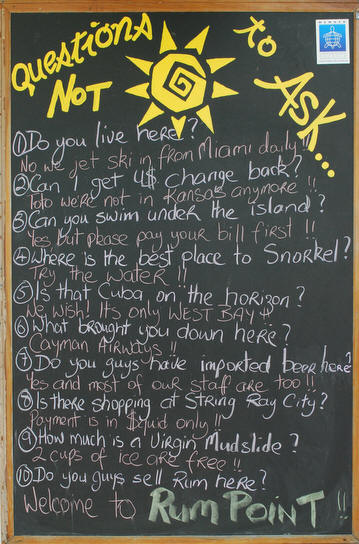 Questions to
NOT ASK...
MEMBER
① Do you live here?
No we jet ski in from Miami daily!!
② Can I get U$ change back?
Toto we're not in Kansas anymore!!
③ Can you swim under the island?
Yes but please pay your bill first!!
④ Where is the best place to Snorkel?
Try the Water!!
⑤ Is that Cuba on the horizon?
We wish! Its only WEST BAY
⑥ What brought you down here?
Cayman Airways!!
⑦ Do you guys have imported beer here?
Yes and most of our staff are too!!
⑧ Is there shopping at String Ray City?
Payment is in $quid only!!
⑨ How much is a Virgin Mudslide?
2 cups of ice are free!!
⑩ Do you guys sell Rum here?
Welcome to RUM POINT!!